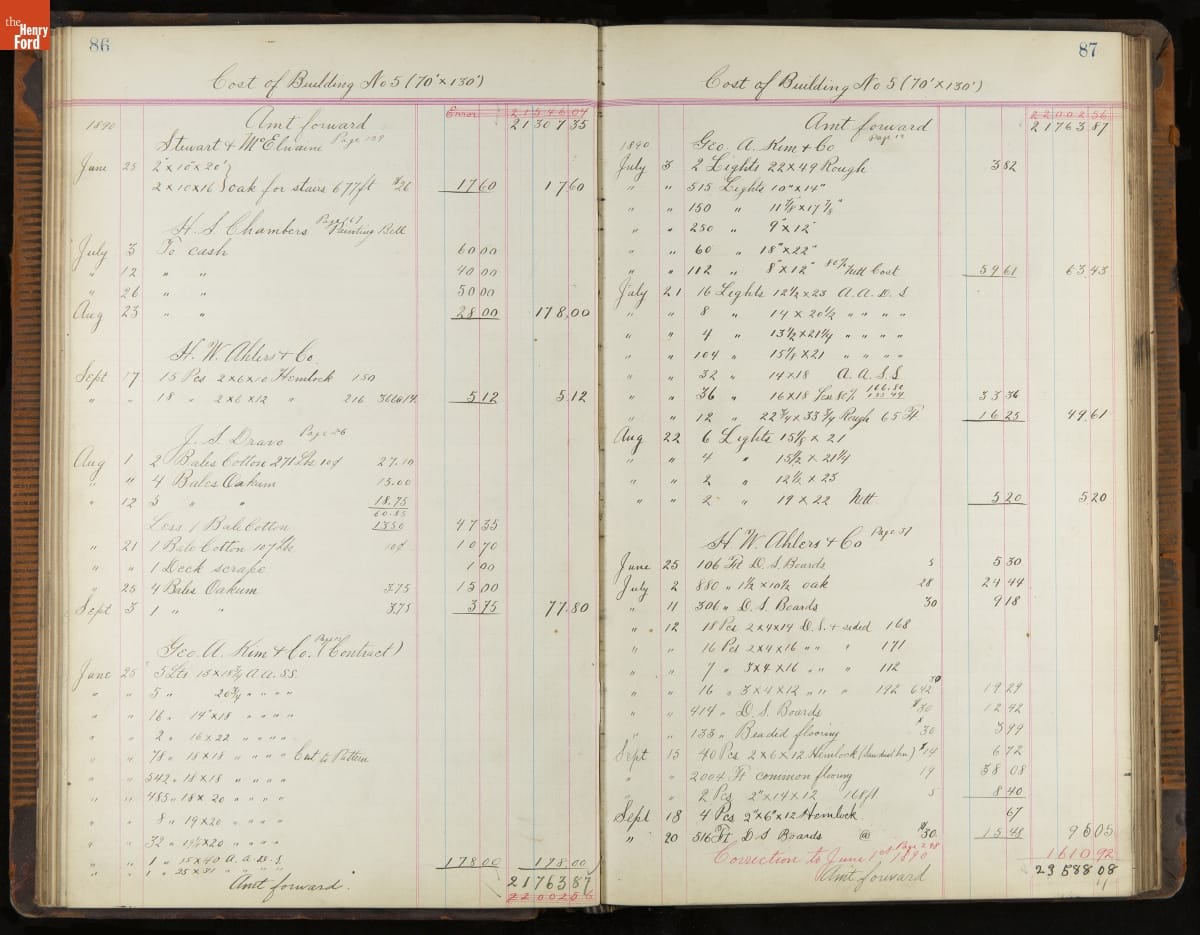 the Henry Ford
86
Cost of Building No 5 (70' x 130')
Error 21546.04
1890 Amt forward 21307 35
Stewart & McElwaine Page 129
June 25 2" x 10" x 20'
2 x 10 x 16 } oak for stairs 677ft $26 17.60 17.60
H. S. Chambers Page 161 Painting Bill
July 3 To cash 60 00
" 12 " " 40 00
" 26 " " 50 00
Aug 23 " " 28 00 178.00
H. W. Ahlers & Co
Sept 17 15 Pcs 2 x 6 x 10 Hemlock 150
" " 18 " 2 x 6 x 12 " 216 366@14 5 12 5 12
J. S. Dravo Page 26
Aug 1 2 Bales Cotton 271 Lbs 10¢ 27.10
" " 4 Bales Oakum 15.00
" 12 5 " " 18.75
60.85
Less 1 Bale Cotton 13 50 47 35
" 21 1 Bale Cotton 107 Lbs 10¢ 10 70
" " 1 Deck scrape 1 00
" 25 4 Bales Oakum 3.75 15 00
Sept 3 1 " " 3.75 3 75 77.80
Geo. A. Kim & Co. (Contract)
June 25 5 Lts 15 x 18 3/4 A. A. S.S.
" " 5 " 20 3/4 " " " "
" " 16 " 14" x 18 " " " "
" " 2 " 16 x 22 " " " "
" " 78 " 18 x 18 " " " " Cut to Pattern
" " 542 " 18 x 18 " " " "
" " 485 " 18 x 20 " " " "
" " 8 " 19 x 20 " " " "
" " 32 " 19 1/2 x 20 " " " "
" " 1 " 15 x 40 A. A. D. S 178 00 178.00
" " 1 " 25 x 31 " " " "
Amt forward. 21763 87
22002 56
87
Cost of Building No 5 (70' x 130')
22002 56
Amt forward 21763 87
1890 Geo. A. Kim & Co
July 3 2 Lights 22 x 49 Rough 3 82
" " 515 Lights 10" x 14"
" " 150 " 11 7/8 x 17 7/8"
" " 250 " 9" x 12"
" " 60 " 18" x 22"
" " 112 " 8" x 12" 80% Nett Cost 59 61 63.43
July 21 16 Lights 12 1/2 x 23 A. A. D. S
" " 8 " 14 x 20 1/2 " " " "
" " 4 " 13 1/2 x 21 1/4 " " " "
" " 104 " 15 1/8 x 21 " " " "
" " 32 " 14 x 18 A. A. S. S
" " 36 " 16 x 18 Less 80% 166.80 133 44 33 36
" " 12 " 22 3/4 x 33 3/4 Rough 65 Ft 16 25 49.61
Aug 22 6 Lights 15 1/8 x 21
" " 4 " 15 1/2 x 21 1/4
" " 2 " 12 1/2 x 23
" " 2 " 19 x 22 Nett 5 20 5 20
H. W. Ahlers & Co Page 31
June 25 106 Ft D. S. Boards 5 5 30
July 2 880 " 1 1/2 x 10 1/2 oak 28 24 44
" 11 306 " D. S. Boards 30 9 18
" 12 18 Pcs 2 x 4 x 14 D. S. & sided 168
16 Pcs 2 x 4 x 16 " " " 171
" " 7 " 3 x 4 x 16 " " " 112
" " 16 " 3 x 4 x 12 " " " 192 642 30 19.29
" " 414 " D. S. Boards $30 12 42
" " 133 " Beaded flooring 30 3 99
Sept 15 40 Pcs 2 x 6 x 12 Hemlock $14 6 72
" " 2004 Ft common flooring 19 38 08
" " 2 Pcs 2" x 14 x 12 168ft 5 8 40
Sept 18 4 Pcs 2" x 6" x 12 Hemlock 67
" 20 516 Ft D S Boards @ $30 15 48 96 05
Correction to June 1st 1890 Page 298 1610.92
Amt forward 23588 08